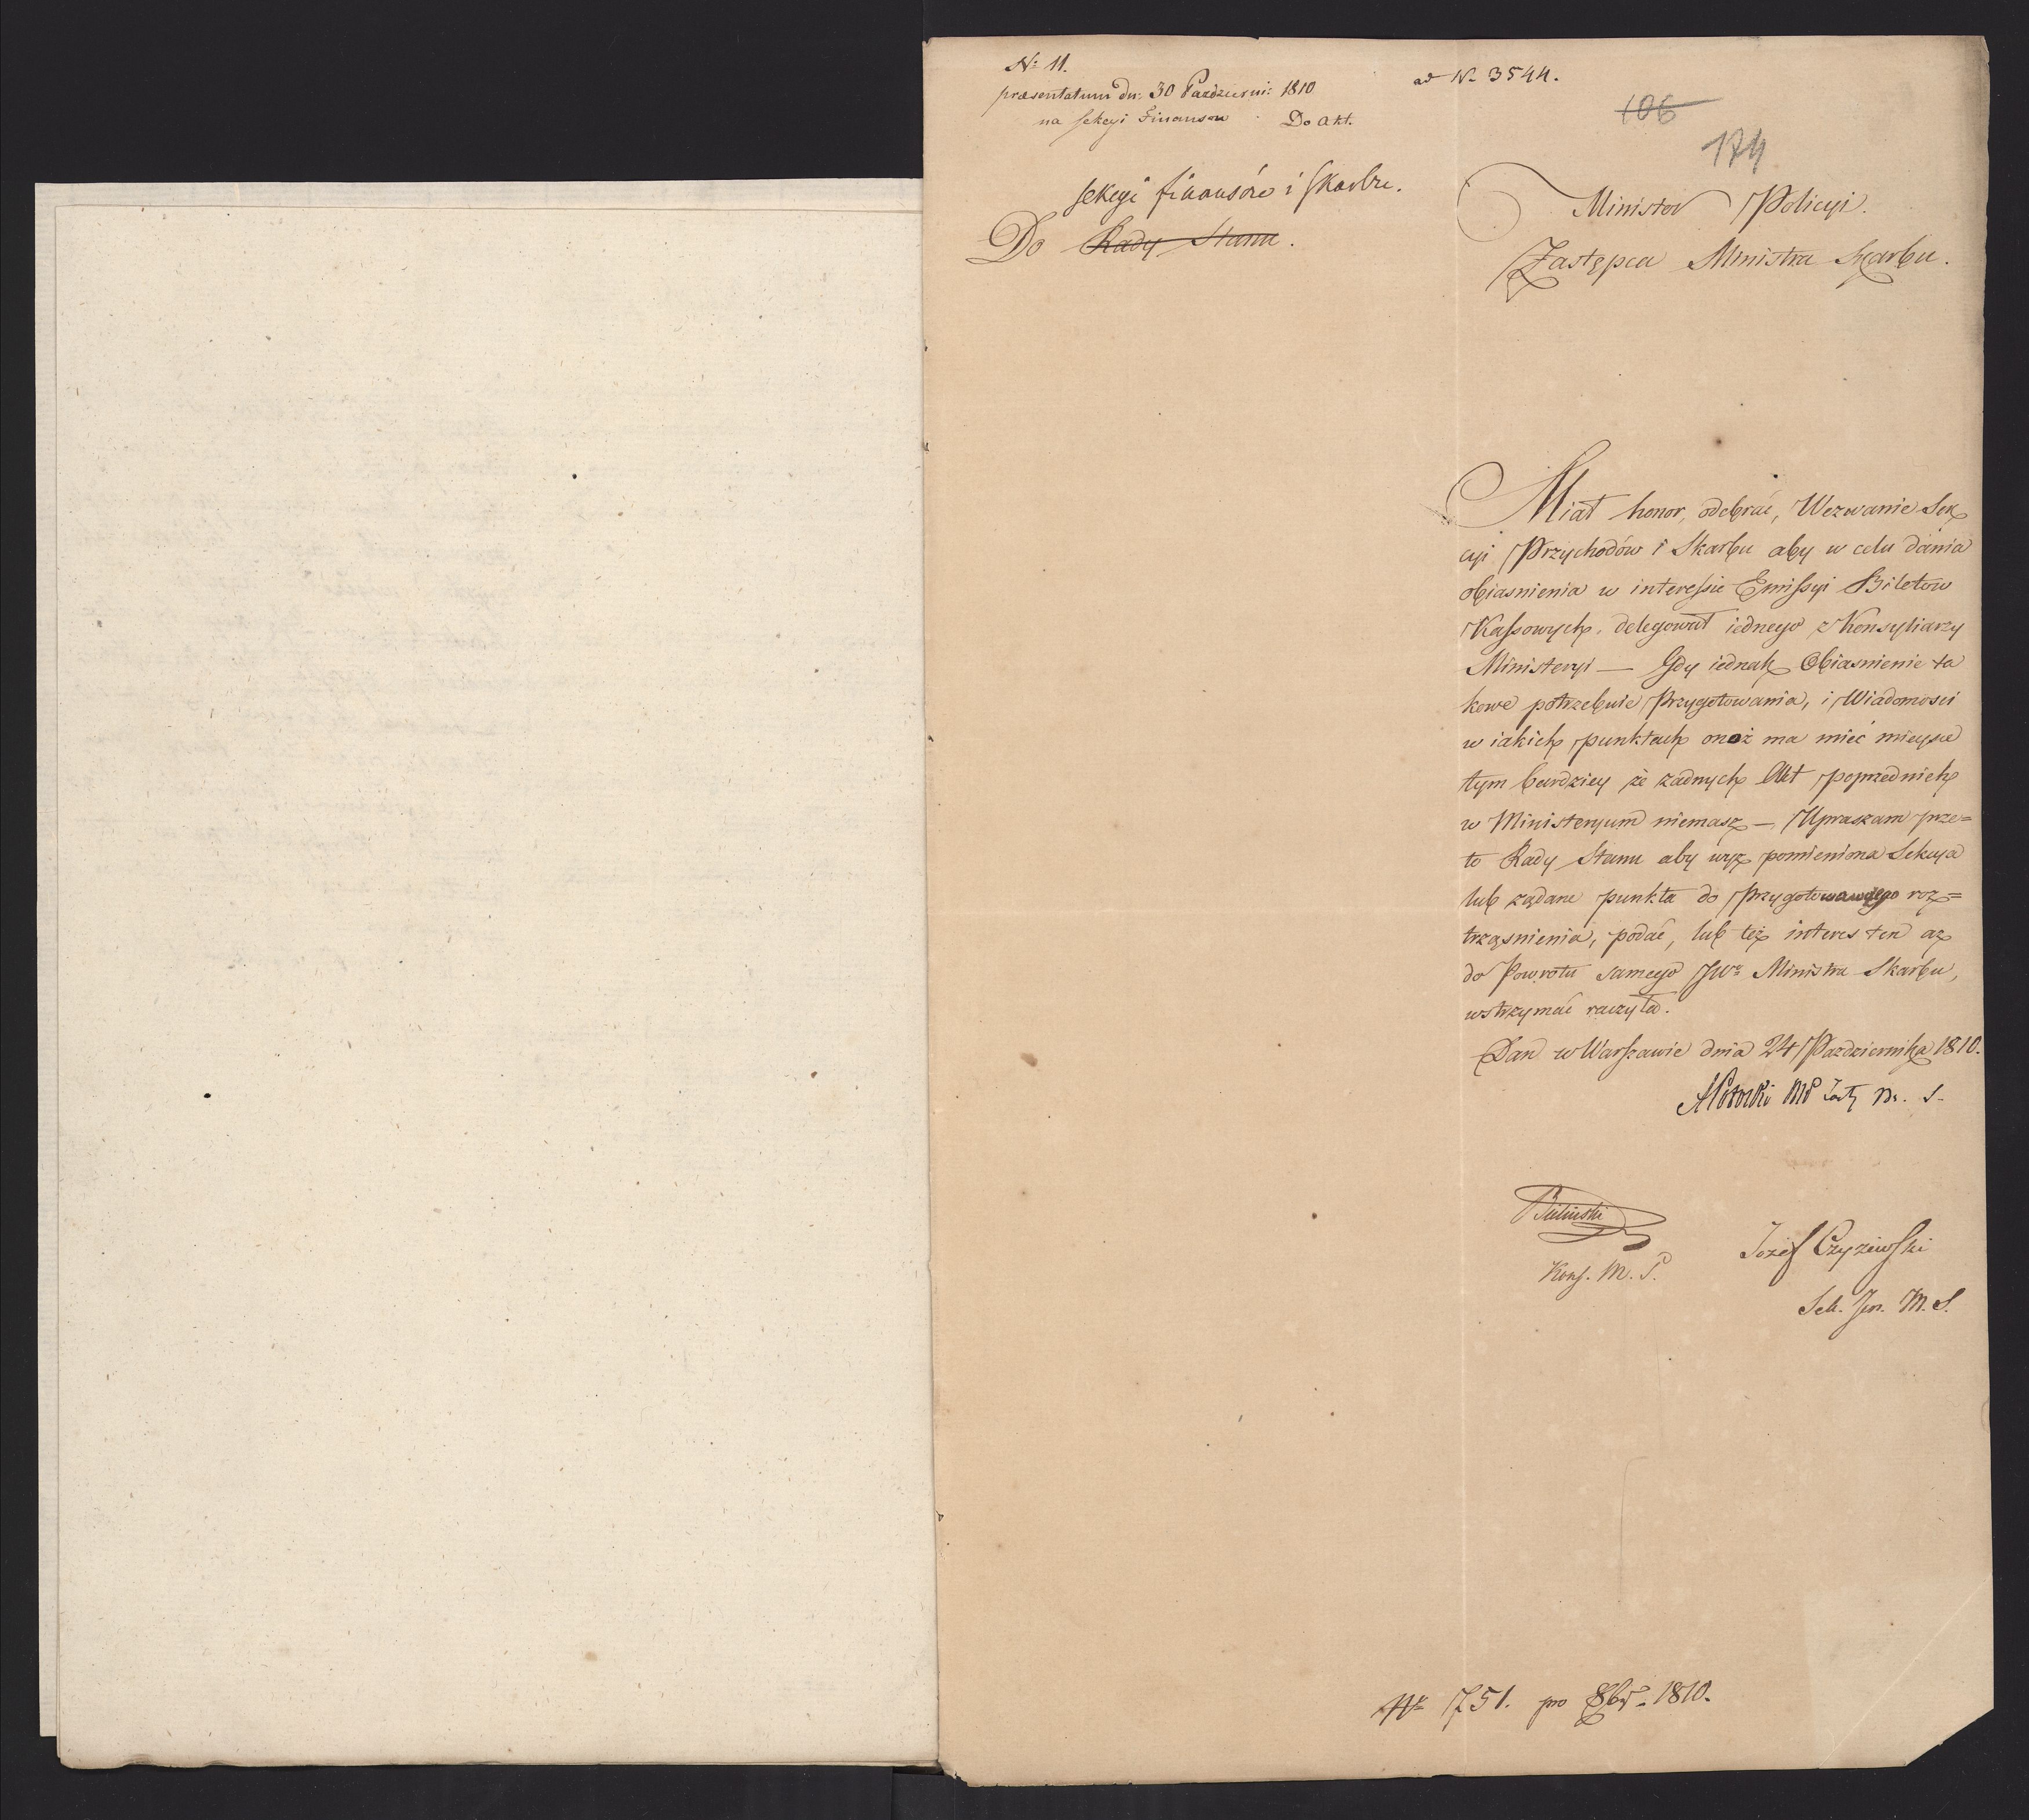 No 11.
præsentatum dn: 30 Październi: 1810
na sekcyi Finansow Do Akt.
ad No 3544.
106
174
sekcyi finansów i skarbu.
Do Rady Stanu.
Minister Policyi.
Zastępca Ministra Skarbu.
Miał honor, odebrać, Wezwanie Sek
cyi Przychodów i Skarbu aby w celu dania
obiasnienia w interessie Emissyi Biletow
Kassowych, delegował iednego z Konsyliarzy
Ministeryi — Gdy iednak Obiasnienie ta
kowe potrzebuie Przygotowania, i Wiadomosci
w iakich punktach onoż ma mieć mieysce
tym bardziey że żadnych Akt poprzednich
w Ministeryum niemasz —, Upraszam prze=
to Rady Stanu aby wyż pomieniona Sekcya
lub żądane punkta do Przygotowawczego roz=
trząsnienia, podać, lub też interes ten aż
do Powrotu samego JW. Ministra Skarbu,
wstrzymać raczyła.
Dan w Warszawie dnia 24 Pazdziernika 1810.
APotocki MP Zast. M. S.
Bieliński
Kons. M. P.
Jozef Czyżewski
Sek. Jen. M. S.
No 1751. pro 8br. 1810.